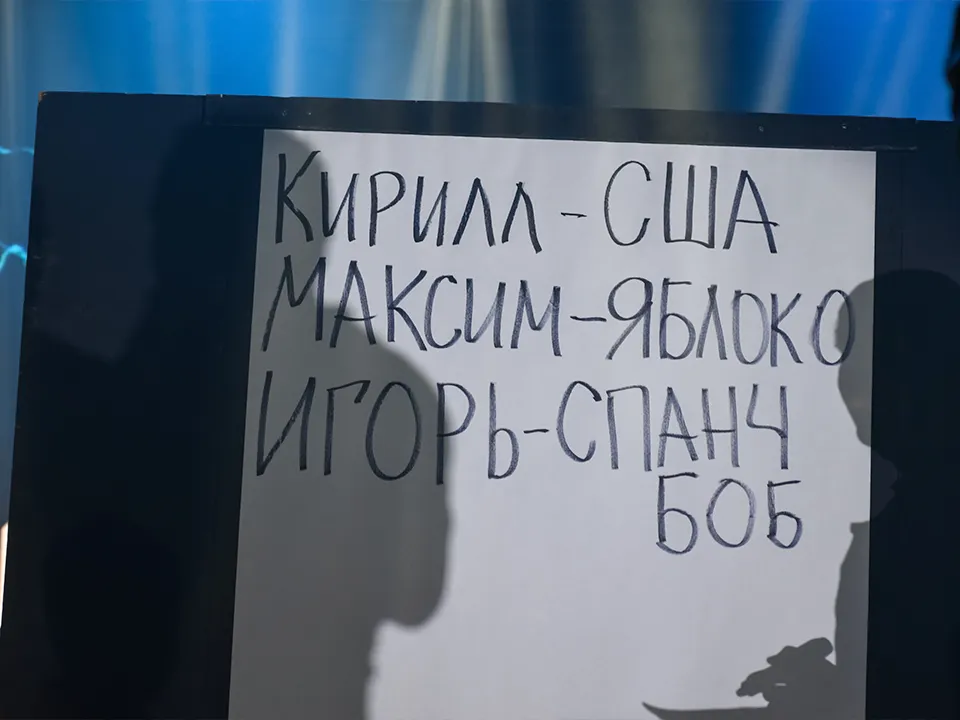 КИРИЛЛ - США
МАКСИМ - ЯБЛОКО
ИГОРЬ - СПАНЧ
БОБ